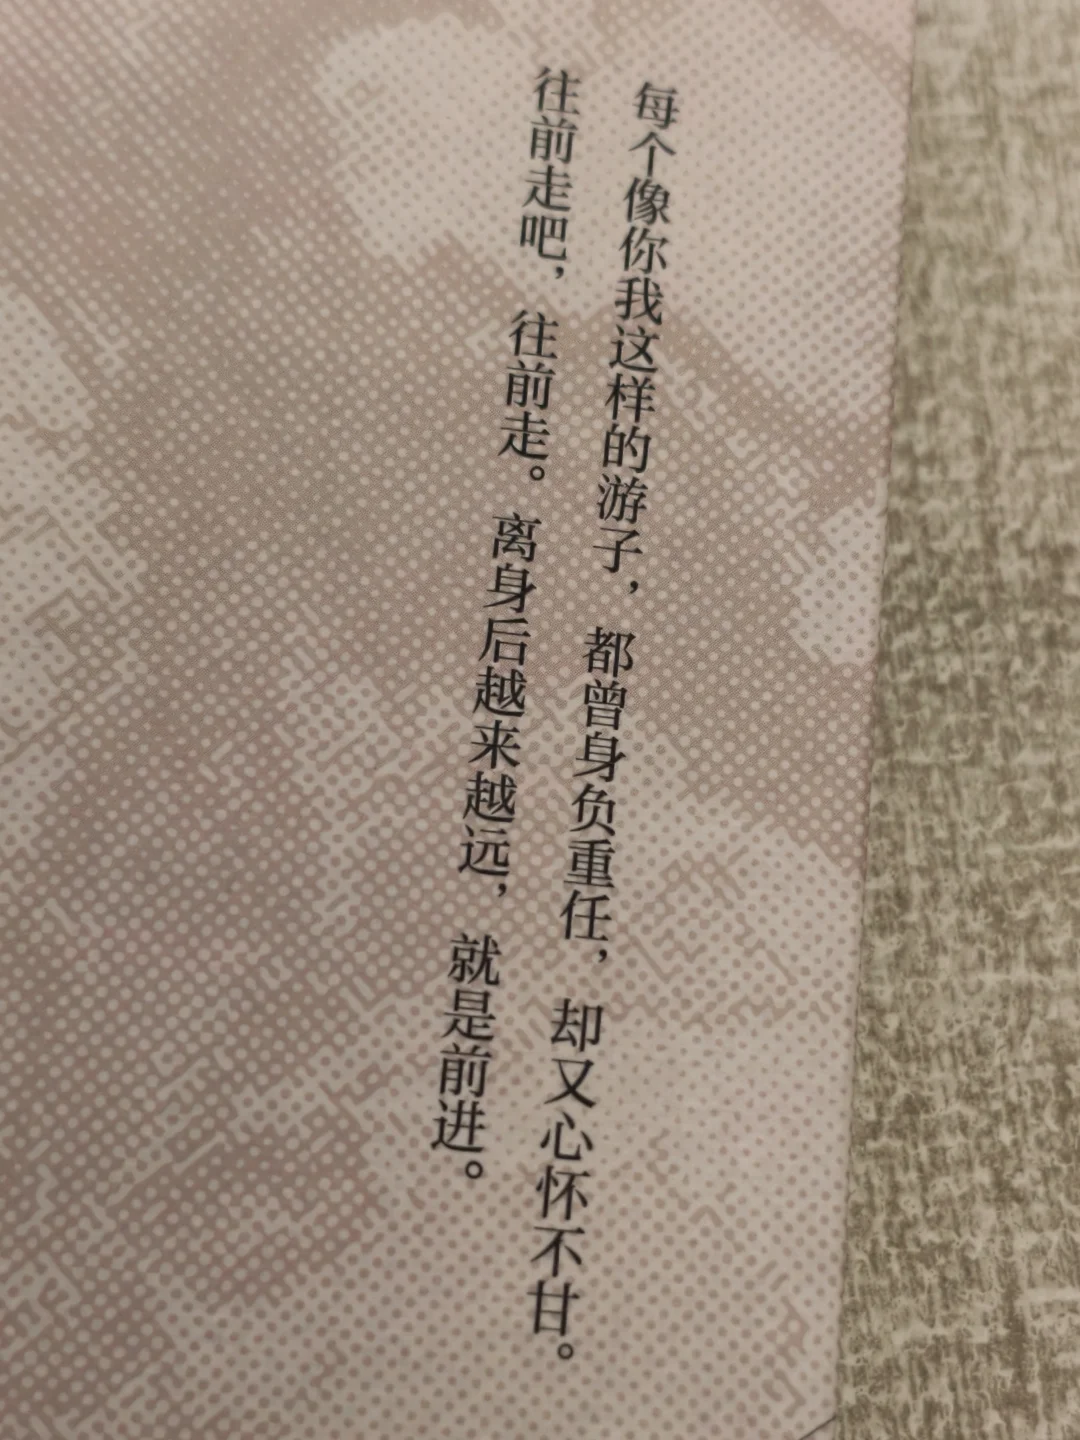 每个像你我这样的游子，都曾身负重任，却又心怀不甘。
往前走吧，往前走。离身后越来越远，就是前进。